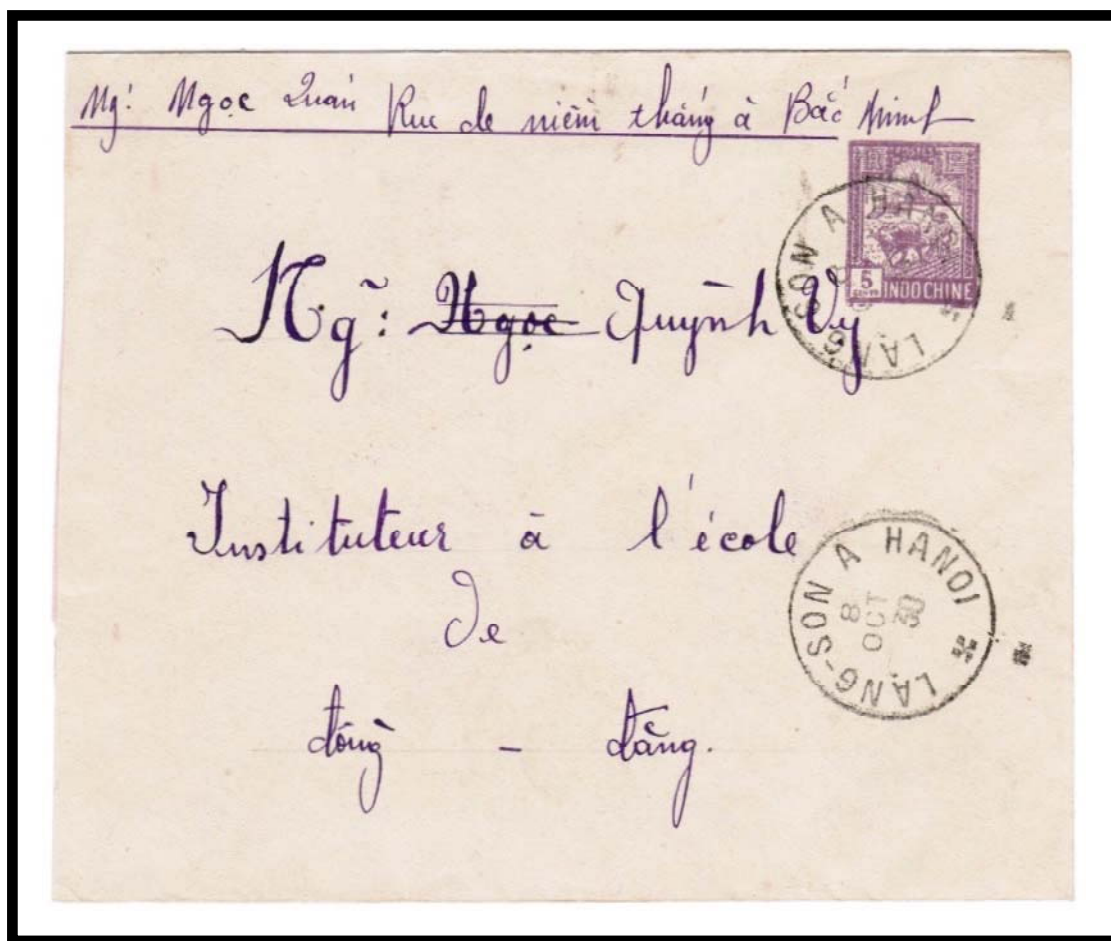 Ng: Ngọc Quán Rue de à Bắc Ninh
5 INDOCHINE
LANG-SON A HANOI
Ng̃: Ngọc Quỳnh Vy
Instituteur à l'école
de
đồng - đăng.
LANG-SON A HANOI
8
OCT
30